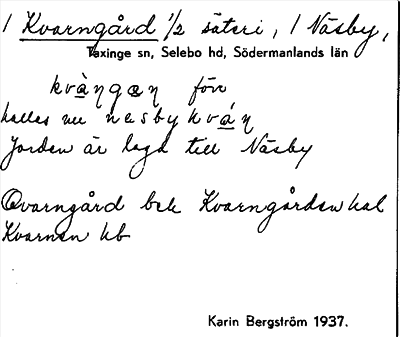 1 Kvarngård 1/2 säteri, 1 Näsby,
Taxinge sn, Selebo hd, Södermanlands län
kvàŋgɷŋ förr
kallas nu nesbykvá̱ŋ
Jorden är lagd till Näsby
Qvarngård bek Kvarngården kal
Kvarnen kb
Karin Bergström 1937.